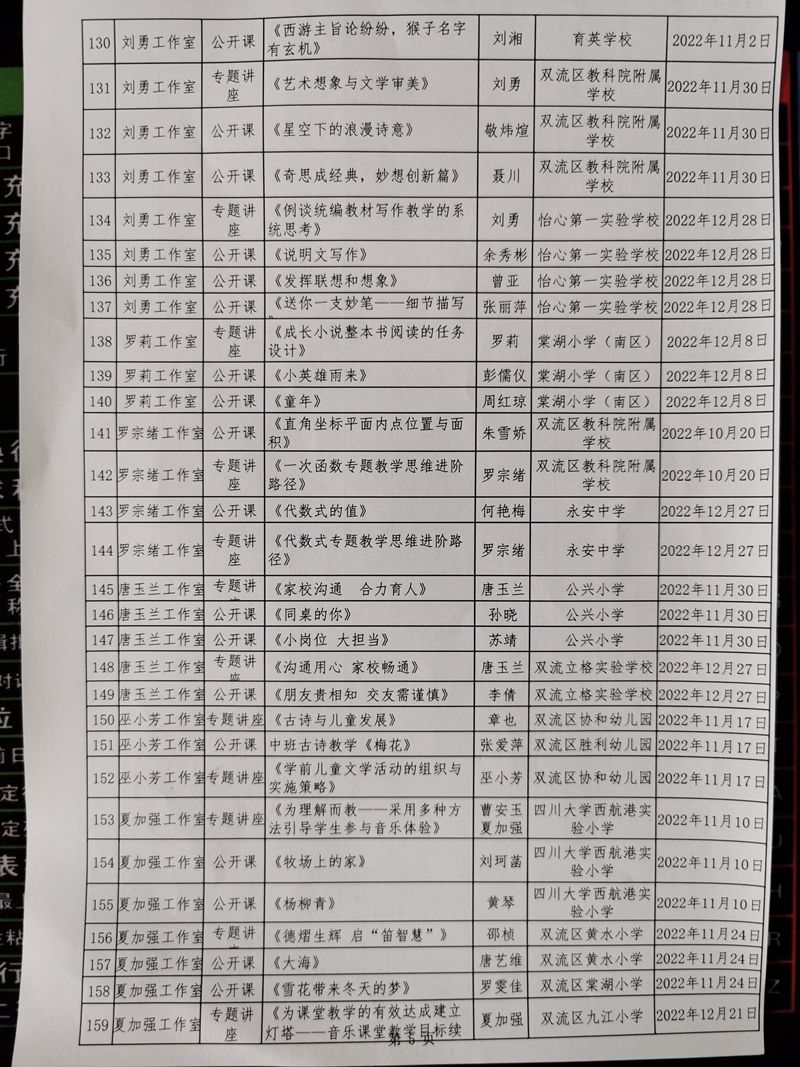 130 刘勇工作室 公开课 《西游主旨论纷纷，猴子名字有玄机》 刘湘 育英学校 2022年11月2日
131 刘勇工作室 专题讲座 《艺术想象与文学审美》 刘勇 双流区教科院附属学校 2022年11月30日
132 刘勇工作室 公开课 《星空下的浪漫诗意》 敬炜煊 双流区教科院附属学校 2022年11月30日
133 刘勇工作室 公开课 《奇思成经典，妙想创新篇》 聂川 双流区教科院附属学校 2022年11月30日
134 刘勇工作室 专题讲座 《例谈统编教材写作教学的系统思考》 刘勇 怡心第一实验学校 2022年12月28日
135 刘勇工作室 公开课 《说明文写作》 余秀彬 怡心第一实验学校 2022年12月28日
136 刘勇工作室 公开课 《发挥联想和想象》 曾亚 怡心第一实验学校 2022年12月28日
137 刘勇工作室 公开课 《送你一支妙笔——细节描写 张丽萍 怡心第一实验学校 2022年12月28日
138 罗莉工作室 专题讲座 《成长小说整本书阅读的任务设计》 罗莉 棠湖小学（南区） 2022年12月8日
139 罗莉工作室 公开课 《小英雄雨来》 彭儒仪 棠湖小学（南区） 2022年12月8日
140 罗莉工作室 公开课 《童年》 周红琼 棠湖小学（南区） 2022年12月8日
141 罗宗绪工作室 公开课 《直角坐标平面内点位置与面积》 朱雪娇 双流区教科院附属学校 2022年10月20日
142 罗宗绪工作室 专题讲座 《一次函数专题教学思维进阶路径》 罗宗绪 双流区教科院附属学校 2022年10月20日
143 罗宗绪工作室 公开课 《代数式的值》 何艳梅 永安中学 2022年12月27日
144 罗宗绪工作室 专题讲座 《代数式专题教学思维进阶路径》 罗宗绪 永安中学 2022年12月27日
145 唐玉兰工作室 专题讲座 《家校沟通 合力育人》 唐玉兰 公兴小学 2022年11月30日
146 唐玉兰工作室 公开课 《同桌的你》 孙晓 公兴小学 2022年11月30日
147 唐玉兰工作室 公开课 《小岗位 大担当》 苏靖 公兴小学 2022年11月30日
148 唐玉兰工作室 专题讲座 《沟通用心 家校畅通》 唐玉兰 双流立格实验学校 2022年12月27日
149 唐玉兰工作室 公开课 《朋友贵相知 交友需谨慎》 李倩 双流立格实验学校 2022年12月27日
150 巫小芳工作室 专题讲座 《古诗与儿童发展》 章也 双流区协和幼儿园 2022年11月17日
151 巫小芳工作室 公开课 中班古诗教学《梅花》 张爱萍 双流区胜利幼儿园 2022年11月17日
152 巫小芳工作室 专题讲座 《学前儿童文学活动的组织与实施策略》 巫小芳 双流区协和幼儿园 2022年11月17日
153 夏加强工作室 专题讲座 《为理解而教——采用多种方法引导学生参与音乐体验》 曹安玉 夏加强 四川大学西航港实验小学 2022年11月10日
154 夏加强工作室 公开课 《牧场上的家》 刘珂菡 四川大学西航港实验小学 2022年11月10日
155 夏加强工作室 公开课 《杨柳青》 黄琴 四川大学西航港实验小学 2022年11月10日
156 夏加强工作室 专题讲 《德熠生辉 启“笛智慧”》 邵桢 双流区黄水小学 2022年11月24日
157 夏加强工作室 公开课 《大海》 唐艺维 双流区黄水小学 2022年11月24日
158 夏加强工作室 公开课 《雪花带来冬天的梦》 罗雯佳 双流区棠湖小学 2022年11月24日
159 夏加强工作室 专题讲座 《为课堂教学的有效达成建立灯塔——音乐课堂教学目标续 夏加强 双流区九江小学 2022年12月21日
第 5 页